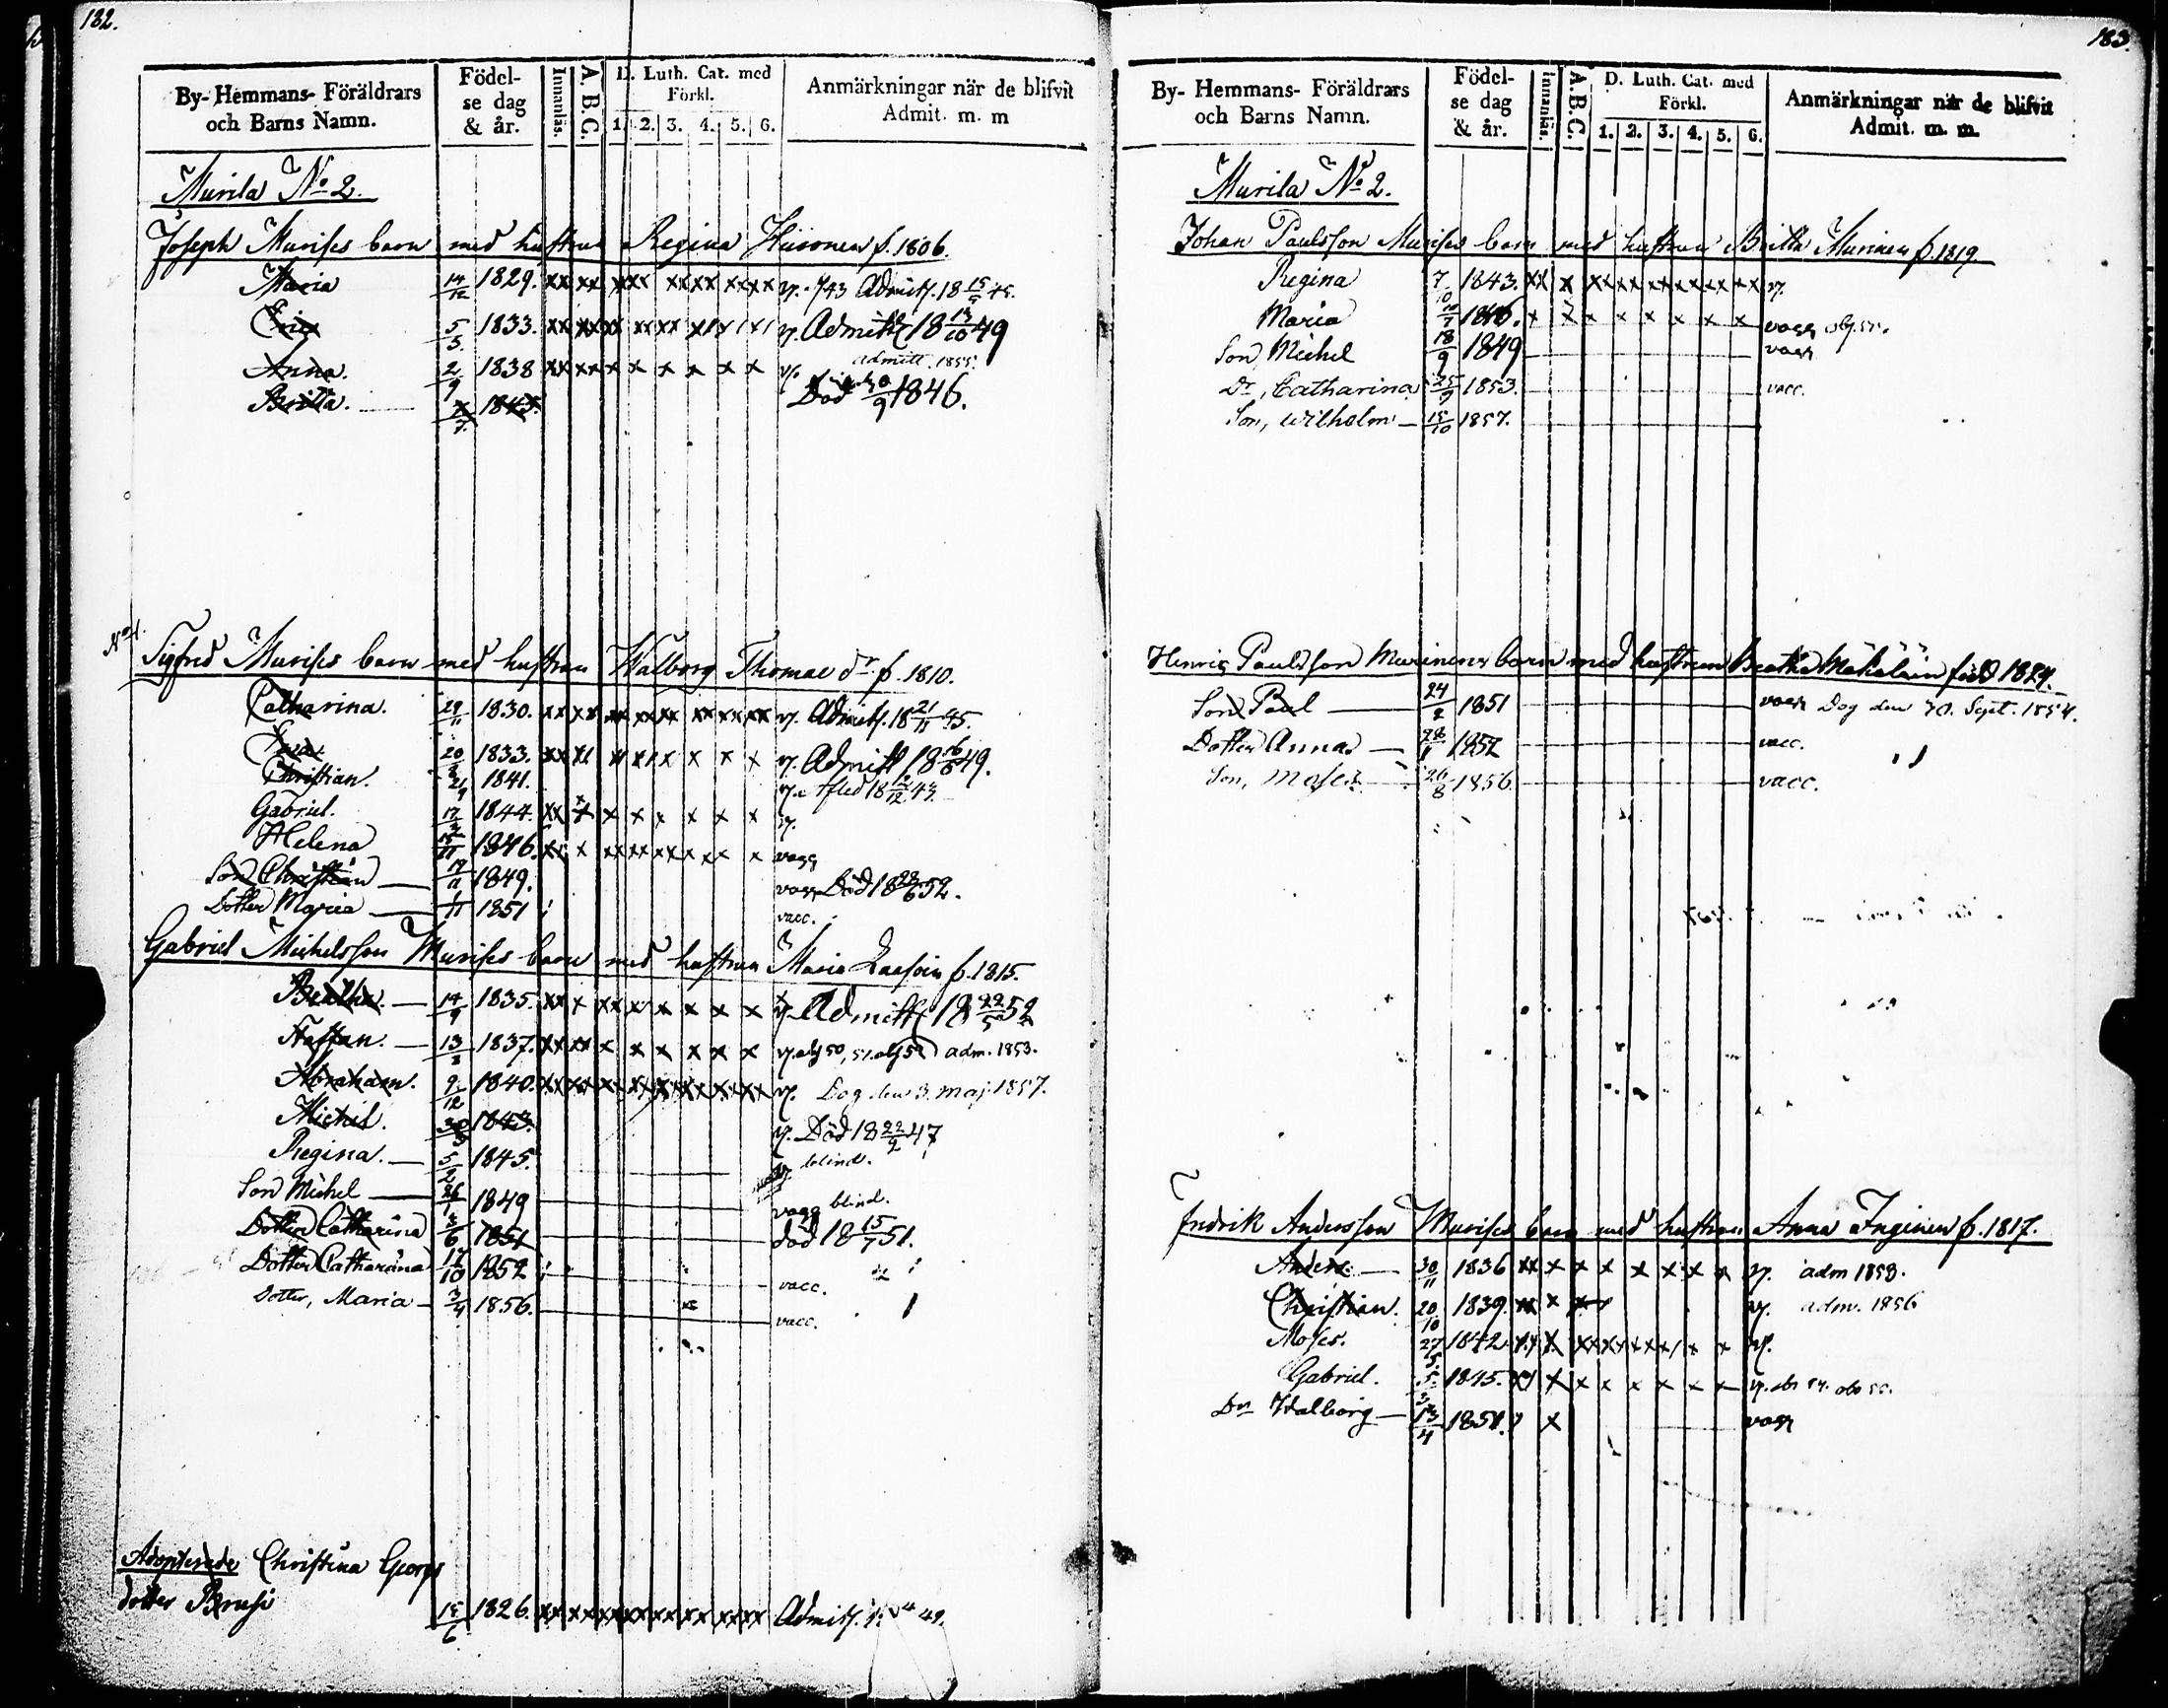 182.
By- Hemmans- Föräldrars och Barns Namn.
Födel-se dag & år.
Innanläs.
A.B.C.
D. Luth. Cat. med Förkl.
1. 2. 3. 4. 5. 6.
Anmärkningar när de blifvit Admit. m. m
Murila No 2.
Joseph Murises barn med hustrun Regina Hüvonen f. 1806.
Maria 14/12 1829. Admitt.
Eric 5/5 1833. Admitt. 18 13/10 49
Anna. 2/9 1838 admitt. 1855.
Britta. 1843. Död 9 1846.
Sigfred Murises barn med hustrun Walborg Thomae dr f. 1810.
Catharina. 29/11 1830. Admitt. 18 21/11 45.
Eva. 20 1833. Admitt 18 49.
Christian. 1841. Afled 18
Gabriel. 17 1844.
Helena 1846. vacc
Son Christian 19/11 1849. vacc Död 18 28/6 52.
Dotter Maria 1/11 1851 vacc.
Gabriel Michelsson Murises barn med hustrun Maria f. 1815.
Beatha. 14/9 1835. Admitt 18 22/5 52
Staffan. 13 1837. adm. 1853.
Abraham. 9/12 1840. Dog den 3. Maj 1857.
Michel. 30 1843. Död 18 22/2 47
Regina. 5/2 1845. blind.
Son Michel 26/1 1849 vacc blind.
Dotter Catharina 3/6 1851 död 18 15/7 51.
Dotter Catharina 17/10 1852 vacc.
Dotter, Maria 3/4 1856. vacc.
Adopterade Christina Georgs
dotter Brusi 15/6 1826. Admitt. 49.
183.
By- Hemmans- Föräldrars och Barns Namn.
Födel-se dag & år.
Innanläs.
A.B.C.
D. Luth. Cat. med Förkl.
1. 2. 3. 4. 5. 6.
Anmärkningar när de blifvit Admit. m. m.
Murila No 2.
Johan Paulsson Murises barn med hustrun Britta Murinen f. 1819
Regina 7/10 1843.
Maria 1846. vacc
Son Michel 18/9 1849 vacc
Dr, Catharina 25/9 1853. vacc.
Son, Wilhelm 15/10 1857.
Henric Paulsson Murinens barn med hustrun Beatha Mähäläin född 1824.
Son Paul 24/2 1851 vacc Dog den 30. Sept. 1854.
Dotter Anna 28 1852 vacc.
Son, Moses 26/8 1856 vacc.
Fredrik Andersson Murises barn med hustrun Anna Inginen f. 1817.
Anders. 30/11 1836 adm 1853.
Christian. 20/10 1839. adm. 1856
Moses. 27/5 1842.
Gabriel. 5/3 1845.
Dr Walborg 13/4 1851. vacc